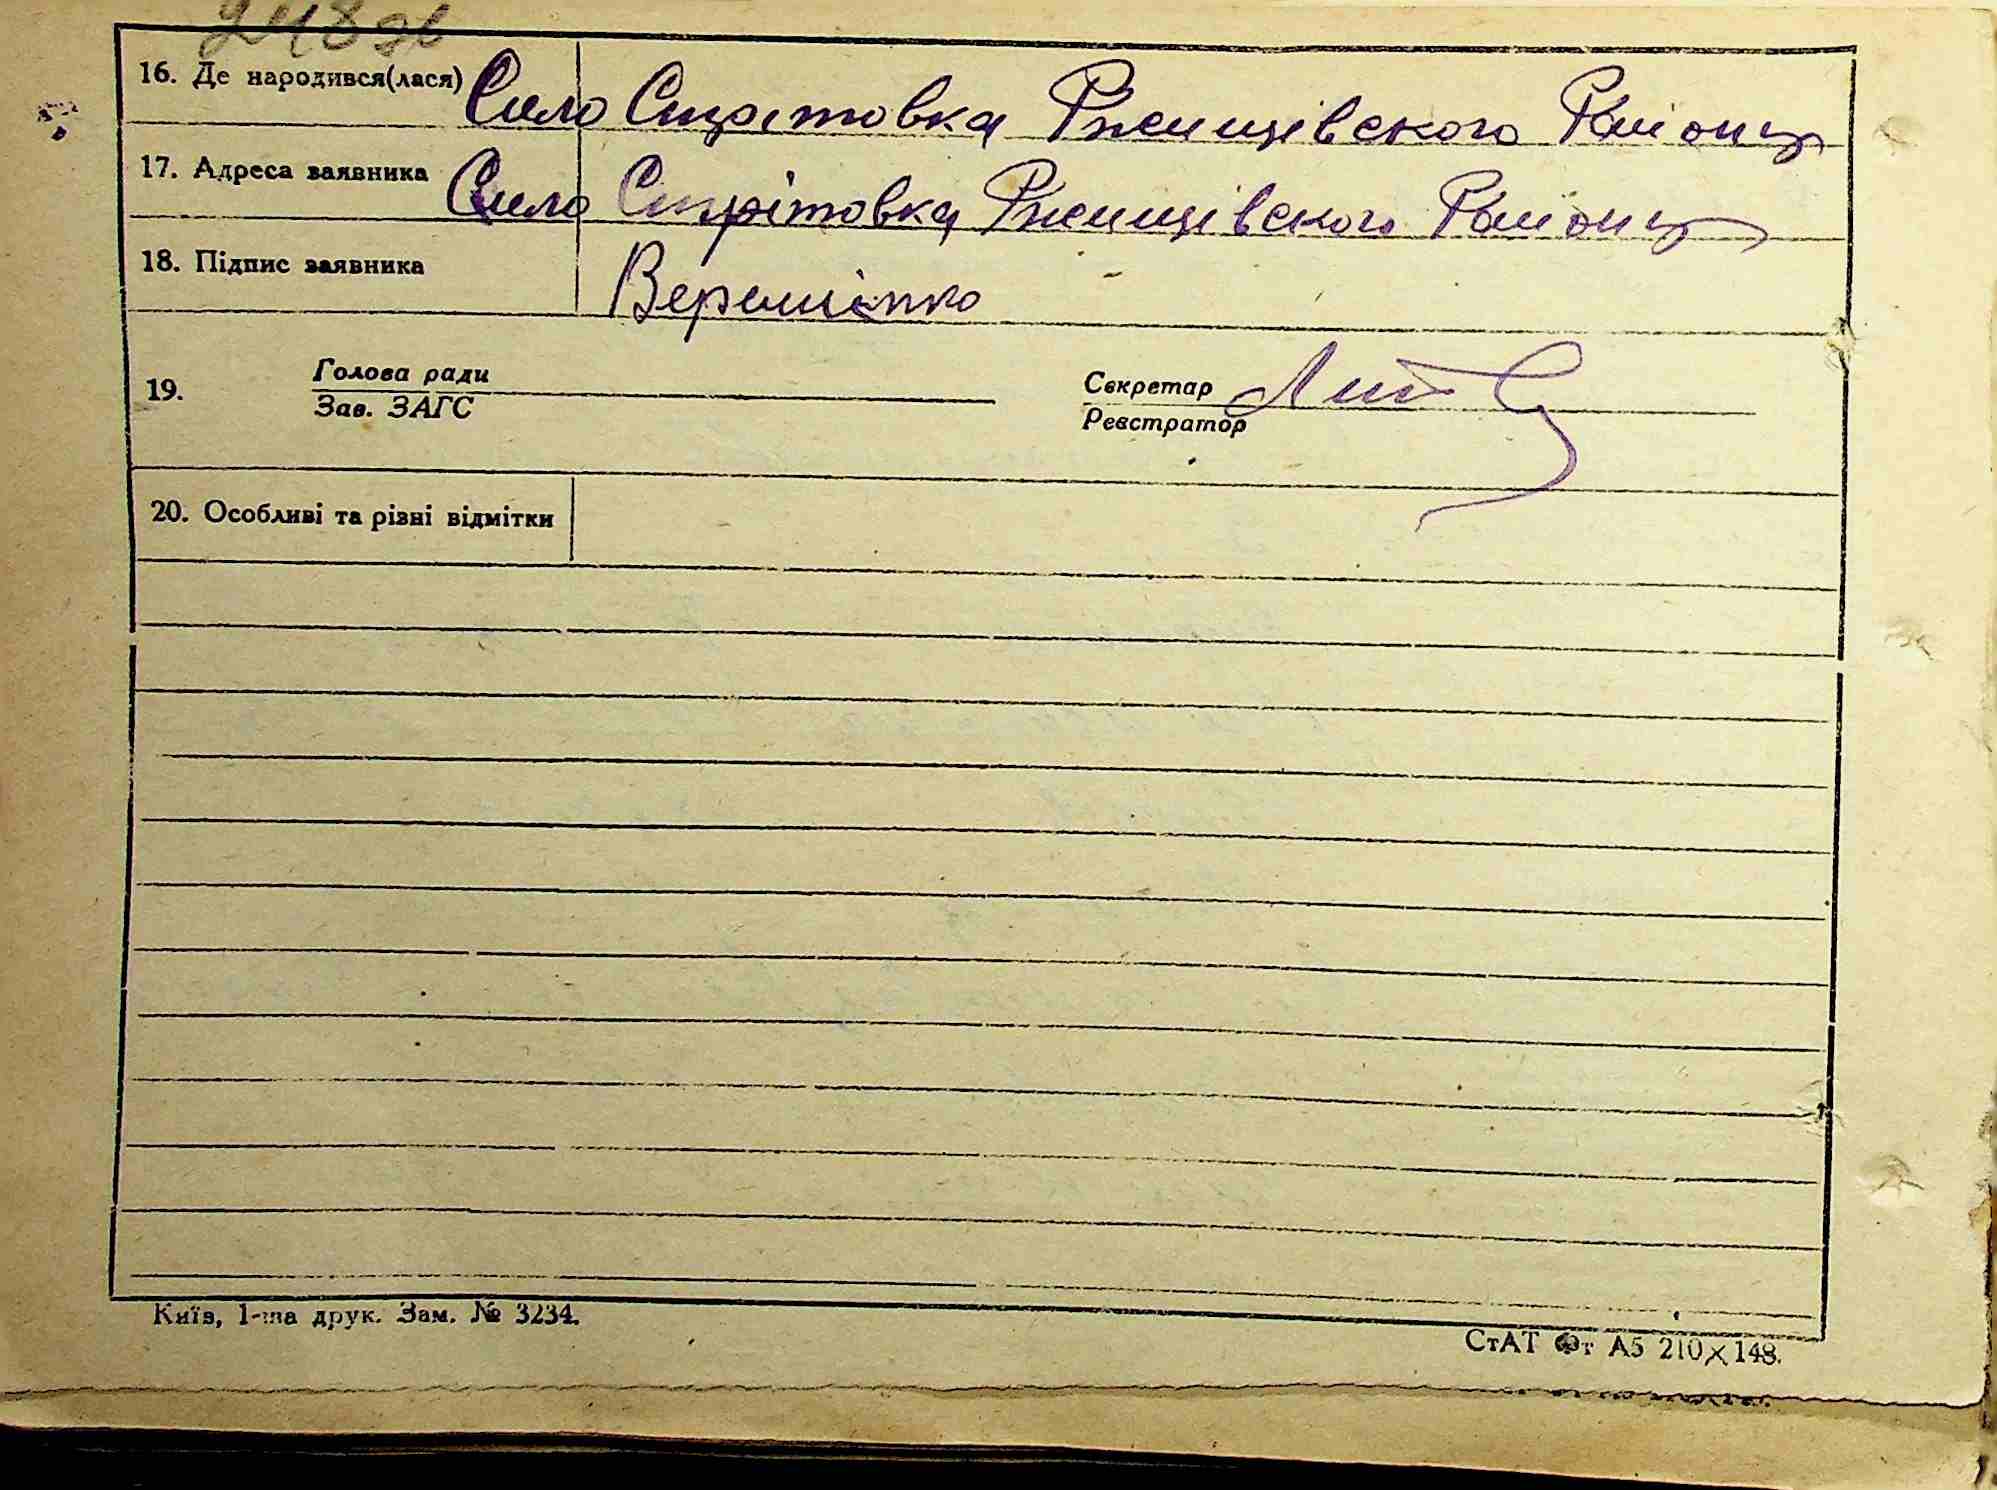 248
16. Де народився(лася) Село Стрітовка Ржищівского Району
17. Адреса заявника Село Стрітовка Ржищівского Району
18. Підпис заявника
19. Голова ради
Зав. ЗАГС
Секретар
Реєстратор
20. Особливі та різні відмітки
Київ, 1-ша друк. Зам. № 3234.
СтАТ Фт А5 210×148.